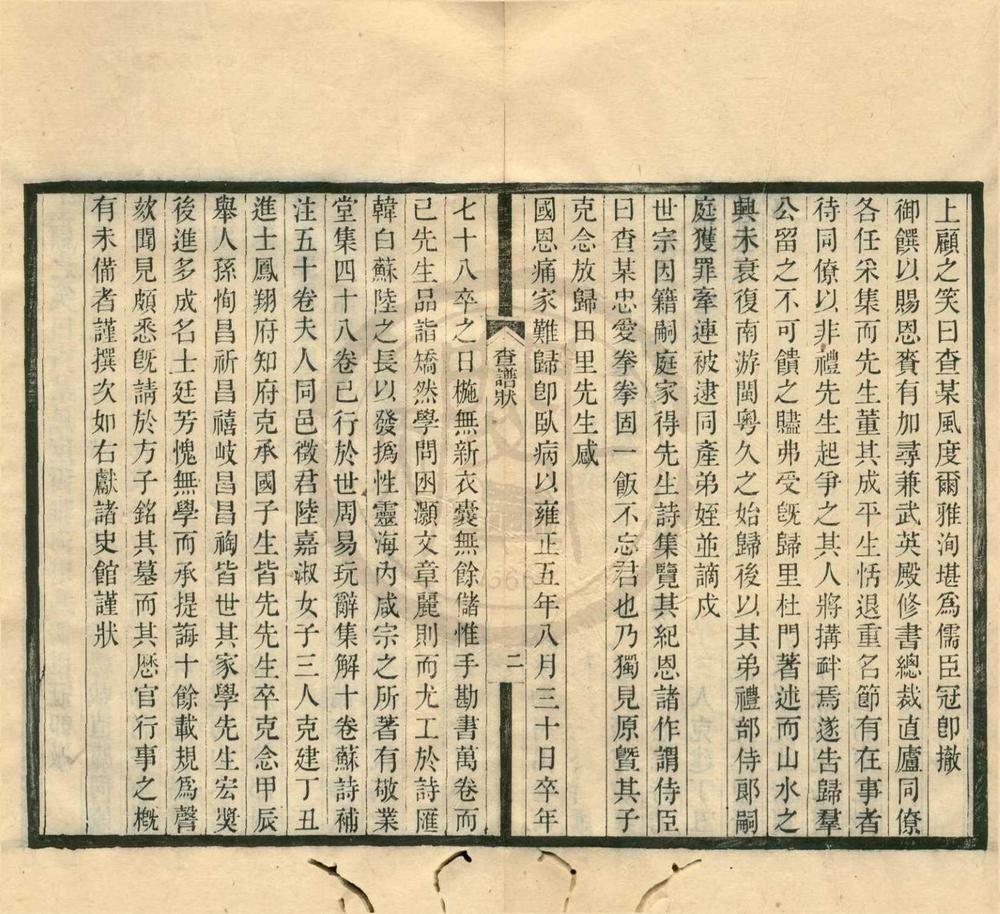 上顧之笑曰查某風度爾雅洵堪爲儒臣冠卽撤
御饌以賜恩賚有加尋兼武英殿修書總裁直廬同僚
各任采集而先生董其成平生恬退重名節有在事者
待同僚以非禮先生起爭之其人將搆衅焉遂告歸羣
公留之不可饋之贐弗受旣歸里杜門著述而山水之
興未衰復南游閩粤久之始歸後以其弟禮部侍郎嗣
庭獲罪牽連被逮同產弟姪並謫戍
世宗因籍嗣庭家得先生詩集覽其紀恩諸作謂侍臣
曰查某忠愛拳拳固一飯不忘君也乃獨見原曁其子
克念放歸田里先生感
國恩痛家難歸卽臥病以雍正五年八月三十日卒年
查譜狀
二
七十八卒之日椸無新衣囊無餘儲惟手勘書萬卷而
已先生品詣矯然學問囦灝文章麗則而尤工於詩匯
韓白蘇陸之長以發撝性靈海內咸宗之所著有敬業
堂集四十八卷已行於世周易玩辭集解十卷蘇詩補
注五十卷夫人同邑徵君陸嘉淑女子三人克建丁丑
進士鳳翔府知府克承國子生皆先先生卒克念甲辰
舉人孫恂昌祈昌禧岐昌昌祹皆世其家學先生宏奬
後進多成名士廷芳愧無學而承提誨十餘載規爲謦
欬聞見頗悉旣請於方子銘其墓而其歷官行事之槪
有未備者謹撰次如右獻諸史館謹狀